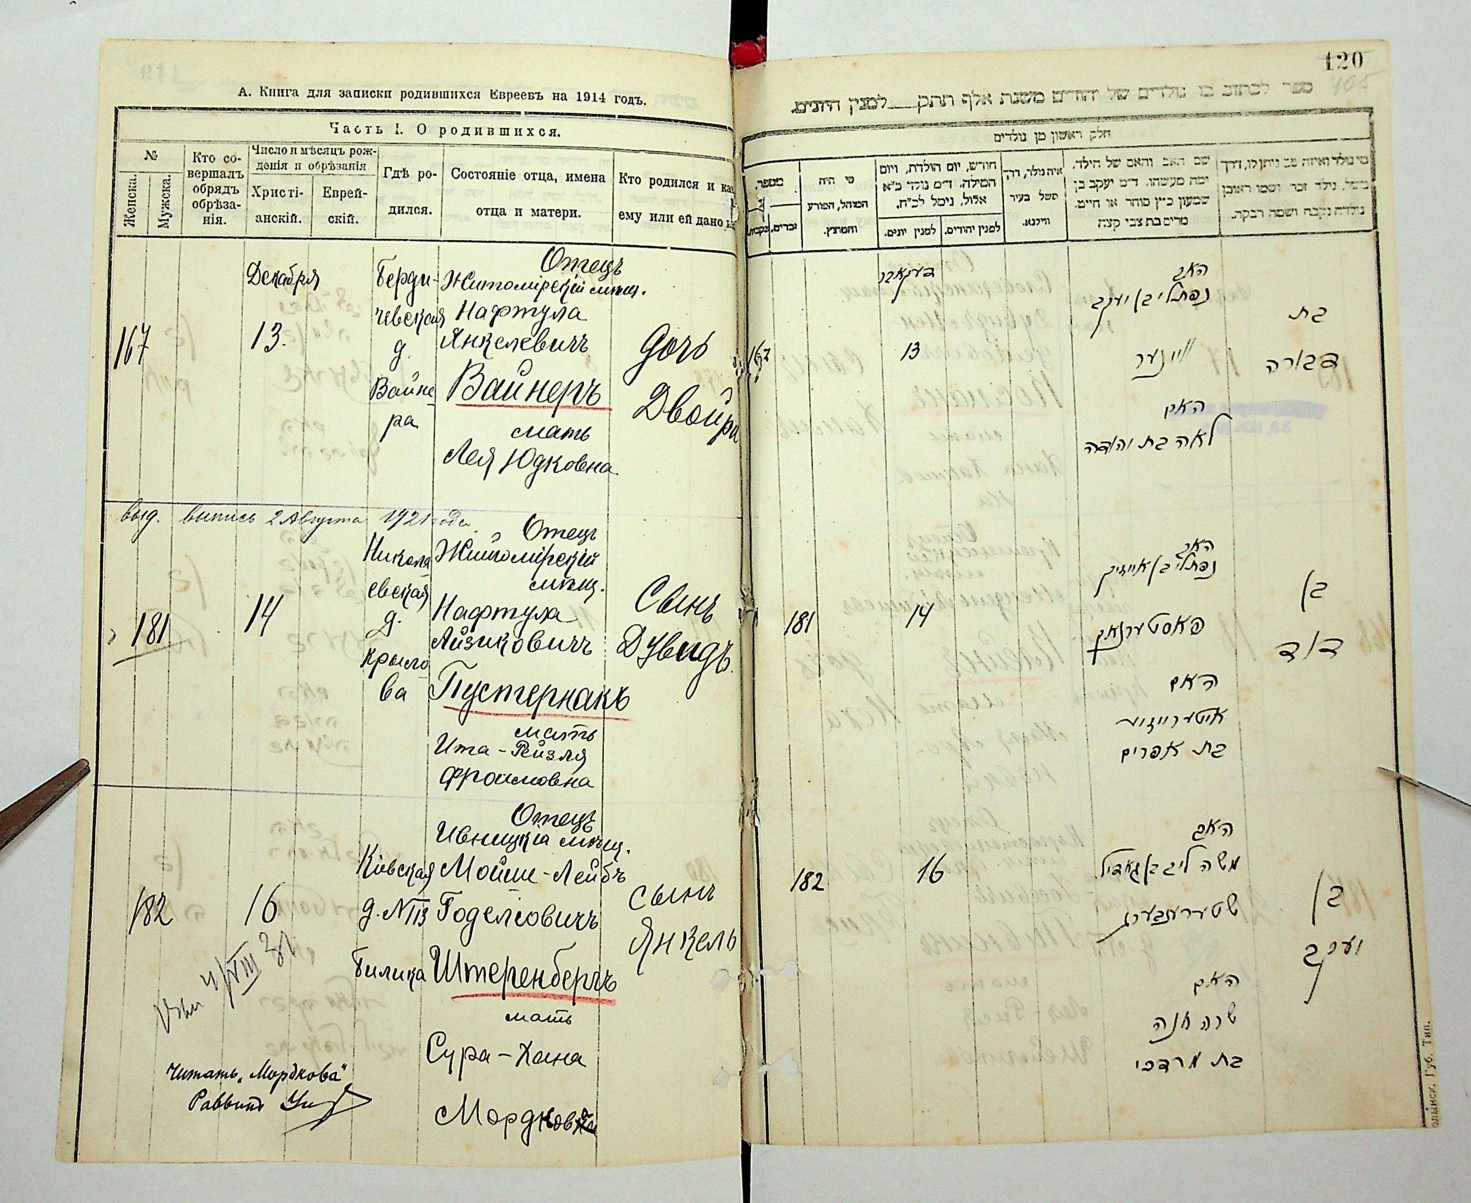 А. Книга для записки родившихся Евреевъ на 1914 годъ.
Часть I. О родившихся.
№
Женска.
Мужска.
Кто со-
вершалъ
обрядъ
обрѣза-
нія.
Число и мѣсяцъ рож-
денія и обрѣзанія
Христі-
анскій.
Еврей-
скій.
Гдѣ ро-
дился.
Состояніе отца, имена
отца и матери.
Кто родился и ка
ему или ей дано
167
Декабря
13.
Берди-
чевская
д.
Вайне-
ра
Отецъ
Житомірскій мѣщ.
Нафтула
Янкелевичъ
Вайнеръ
мать
Лея Юдковна
Дочь
Двойра
выд. выпись 2 Августа 1921 года.
181
14
Никола
евская
д.
Крыло-
ва
Отецъ
Житомірскій
мѣщ.
Нафтула
Айзиковичъ
Пустернакъ
мать
Ита-Рейзля
Фроимовна
Сынъ
Дувидъ.
182
16
Кіевская
д. №113
Билика
Отецъ
Ивницкій мѣщ.
Мойше-Лейбъ
Годелеовичъ
Штеренбергъ
мать
Сура-Хана
Мордковна
сынъ
Янкель
Читать „Мордкова"
Раввинъ
120
405
ספר לכתוב בו נולדים של יהודים משנת אלף תתק לפנין היונים.
חלק ראשון מן נולדים
מספר,
זכרים,
נקבות,
מי היה
המוהל, הפורע
והמוצץ.
חודש, יום הולדת, ויום
המילה. ד"מ נולד כ"א
אלול, נימל לכ"ח.
למנין יונים.
למנין יהודים.
איה נולד, דרך
משל בעיר
ווילנא.
שם האב והאם של הילד.
ומה מעשהו. ד"מ יעקב בן
שמעון כ"ץ סוחר או חייט.
מרים בת צבי קצה
מי נולד ואיזה שם ניתן לו, דרך
משל, נולד זכר ושמו ראובן
נולדה נקבה ושמה רבקה.
167
דעקאבר
13
האב
נפתלי בן יעקב
וויינער
האם
לאה בת יהודה
בת
דבורה
181
14
האב
נפתלי בן אייזיק
פאסטערנאק
האם
איטע רייזע
בת אפרים
בן
דוד
182
16
האב
משה ליב בן גאדיל
שטערנבערג
האם
שרה חנה
בת מרדכי
בן
יעקב
Губ. Тип.